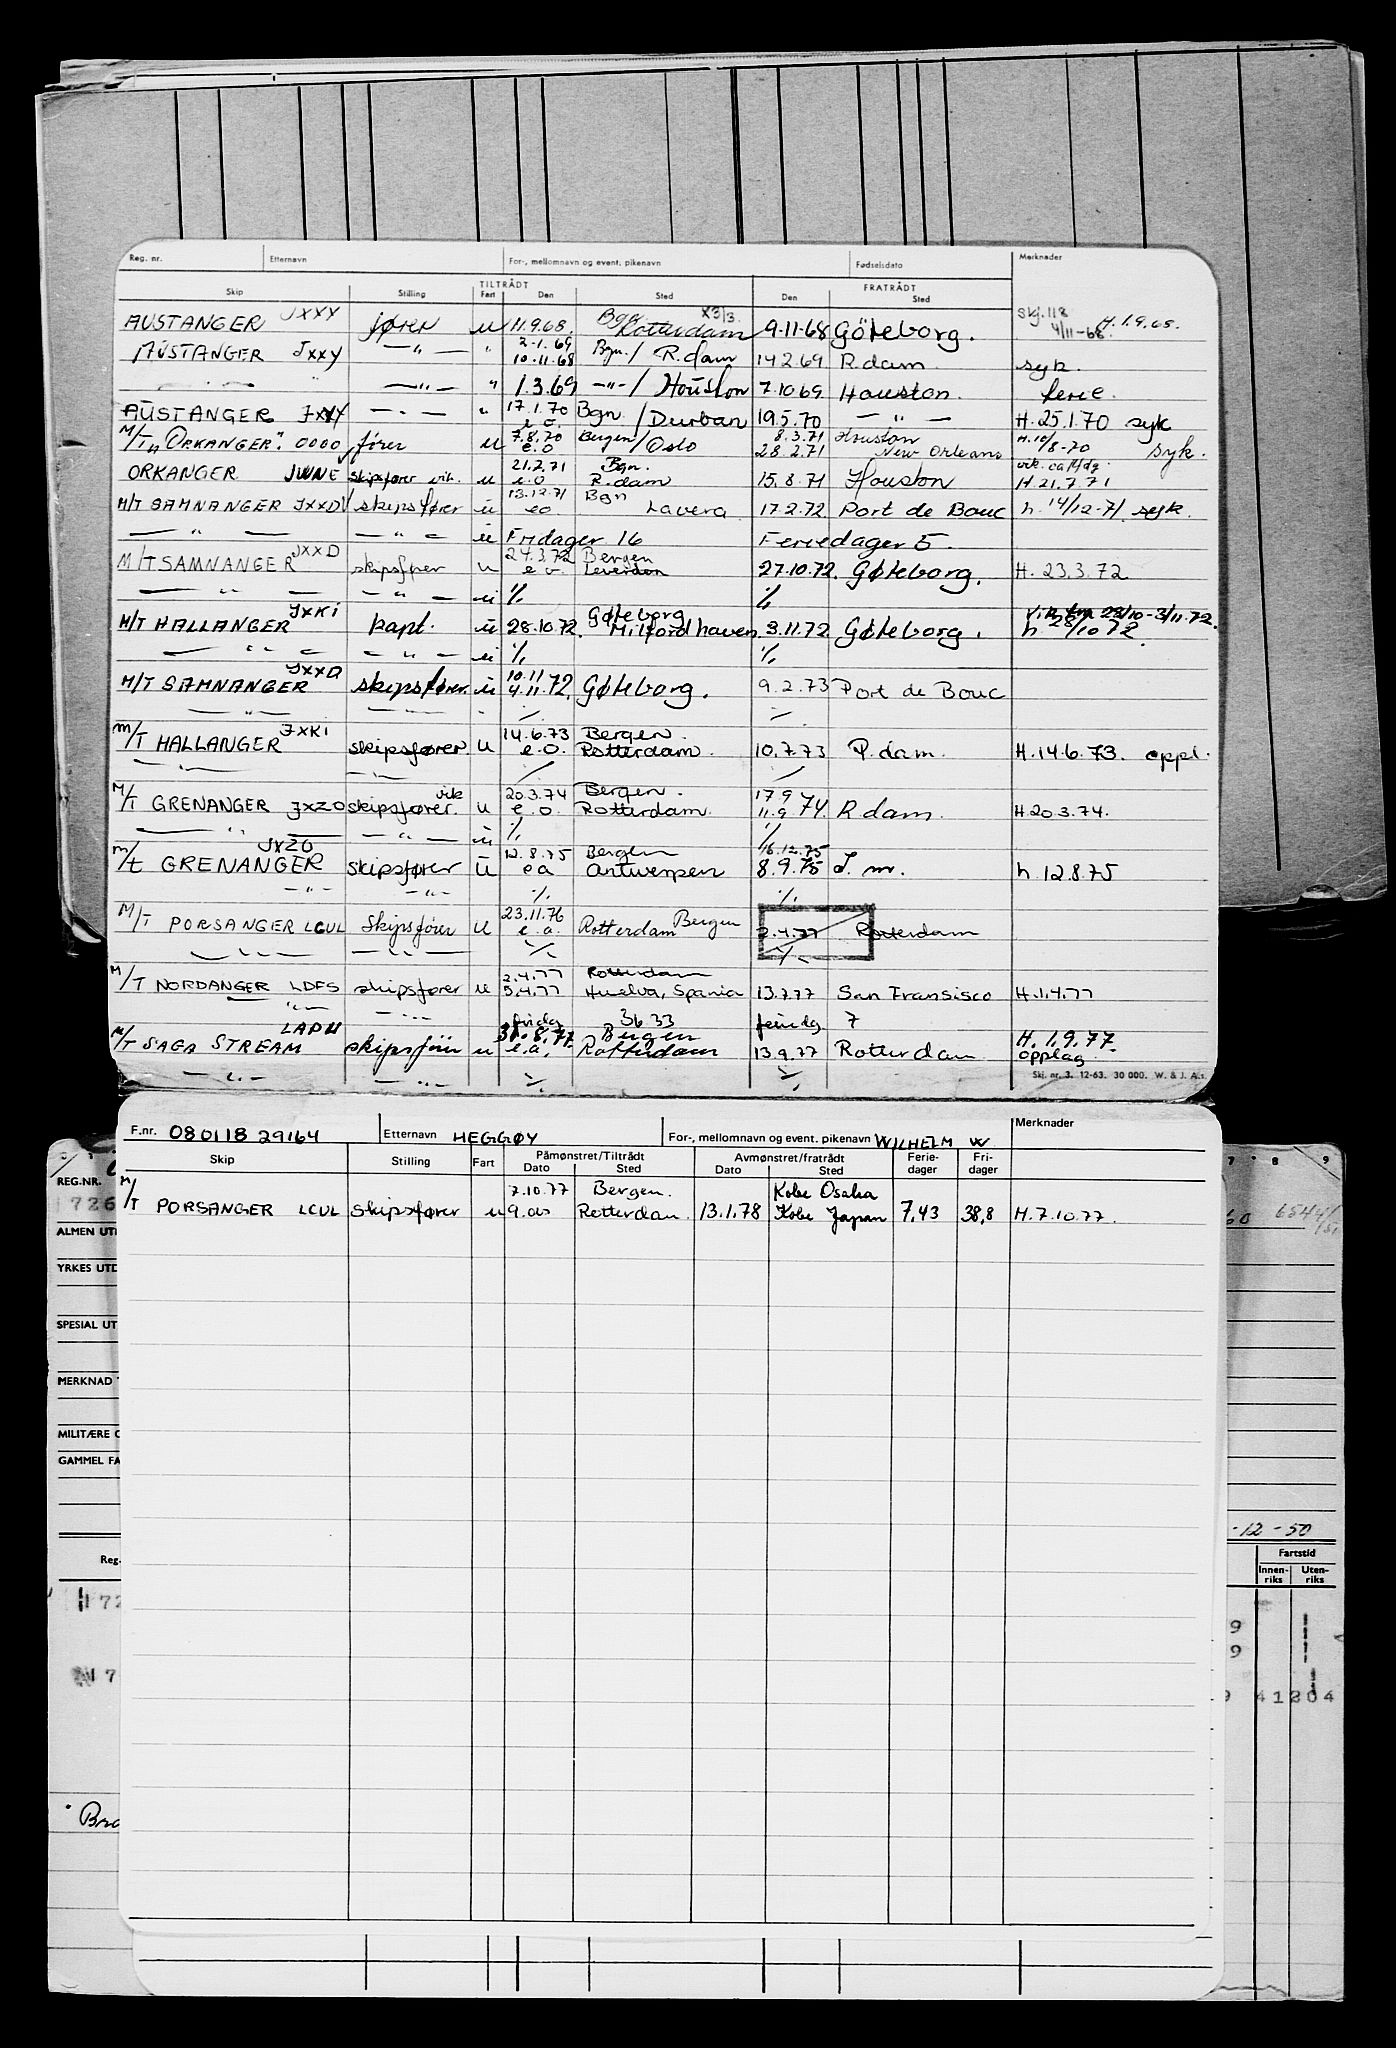 Reg. nr. Etternavn For-, mellomnavn og event. pikenavn Fødselsdato Merknader
TILTRÅDT FRATRÅDT
Skip Stilling Fart Den Sted Den Sted
AUSTANGER JXXY fører u 11.9.68. Bgn Rotterdam X3/3. 9.11.68 Göteborg. skj. 118 4/11-68. H.1.9.68.
AUSTANGER JXXY —"— " 2-1.69 10.11.68 Bgn./ R.dam 14.2.69 R.dam. syk.
" —"— " 1.3.69 —"—/ Houston 7.10.69 Houston. ferie.
AUSTANGER JXXY —"— " 17.1.70 e.o. Bgn /Durban 19.5.70 —"— H.25.1.70 syk
M/T "ORKANGER". fører u 7.8.70 e.o Bergen/Oslo 8.3.71 28.2.71 Houston New Orleans H.10/8-70 syk.
ORKANGER JWNE skipsfører vik. u 21.7.71 e.o Bgn. R.dam 15.8.71 Houston vik. ca 14 dg. H 21.7.71
M/T SAMNANGER JXXD skipsfører u 13.12.71 eo Bgn Lavera 17.2.72 Port de Bouc h.14/12-71. syk.
—"— —"— u Fridager 16 Feriedager 5.
M/T SAMNANGER JXXD skipsfører u 24.3.72 e.o. Bergen 27.10.72. Gøteborg. H. 23.3.72
—"— —"— u % %
M/T HALLANGER JXKI kapt. u 28.10.72. Gøteborg Milfordhaven 3.11.72 Gøteborg. Vik fra 28/10-3/11.72. h 28/10 72.
—"— —"— u % %
M/T SAMNANGER JXXD skipsfører u 10.11 4.11.72. Gøteborg. 9.2.73 Port de Bouc
—"— —"— % %
M/T HALLANGER JXKI skipsfører. u 14.6.73 e.o. Bergen. Rotterdam. 10.7.73 R.dam. H.14.6.73. oppl.
—"— —"— % %
M/T GRENANGER JXZO skipsfører. vik u 20.3.74 e.o. Bergen. Rotterdam. 17.9 11.9 74. R.dam. H.20.3.74.
—"— —"— u % %
M/T GRENANGER JXZO skipsfører u 12.8.75 ea Bergen Antwerpen 16.12.75 8.9.75 S. m. h 12.8.75
—"— —"— % %
M/T PORSANGER LCUL Skipsfører u 23.11.76 e.a. Rotterdam Bergen 2.4.77 Rotterdam
—"— —"— % %
M/T NORDANGER LDFS skipsfører u 2.4.77 5.4.77 Rotterdam Huelva, Spania 13.7.77 San Fransisco H.1.4.77
—"— —"— fridg 36 33 feridg 7
M/T SAGA STREAM LADH skipsfører u 31.8.77. e.a. Bergen Rotterdam 13.9.77 Rotterdam H. 1.9.77. opplag
—"— —"— % %
Skj. nr. 3. 12-63. 30 000. W. & J. A.s
F.nr. 080118 29164 Etternavn HEGGØY For-, mellomnavn og event. pikenavn WILHELM W Merknader
Skip Stilling Fart Påmønstret/Tiltrådt Avmønstret/fratrådt Ferie-dager Fri-dager
Dato Sted Dato Sted
M/T PORSANGER LCUL skipsfører u 7.10.77 9. ds Bergen. Rotterdam. 13.1.78 Kobe Osaka Kobe Japan 7,43 38,8 H.7.10.77.
REG.NR.
726
ALMEN UT
YRKES UTD
SPESIAL UT
MERKNAD
MILITÆRE
GAMMEL FA
Reg.
172
7
Bra
7 8 9
-12-50
Fartstid
Innen-riks Uten-riks
9
9
9 41204